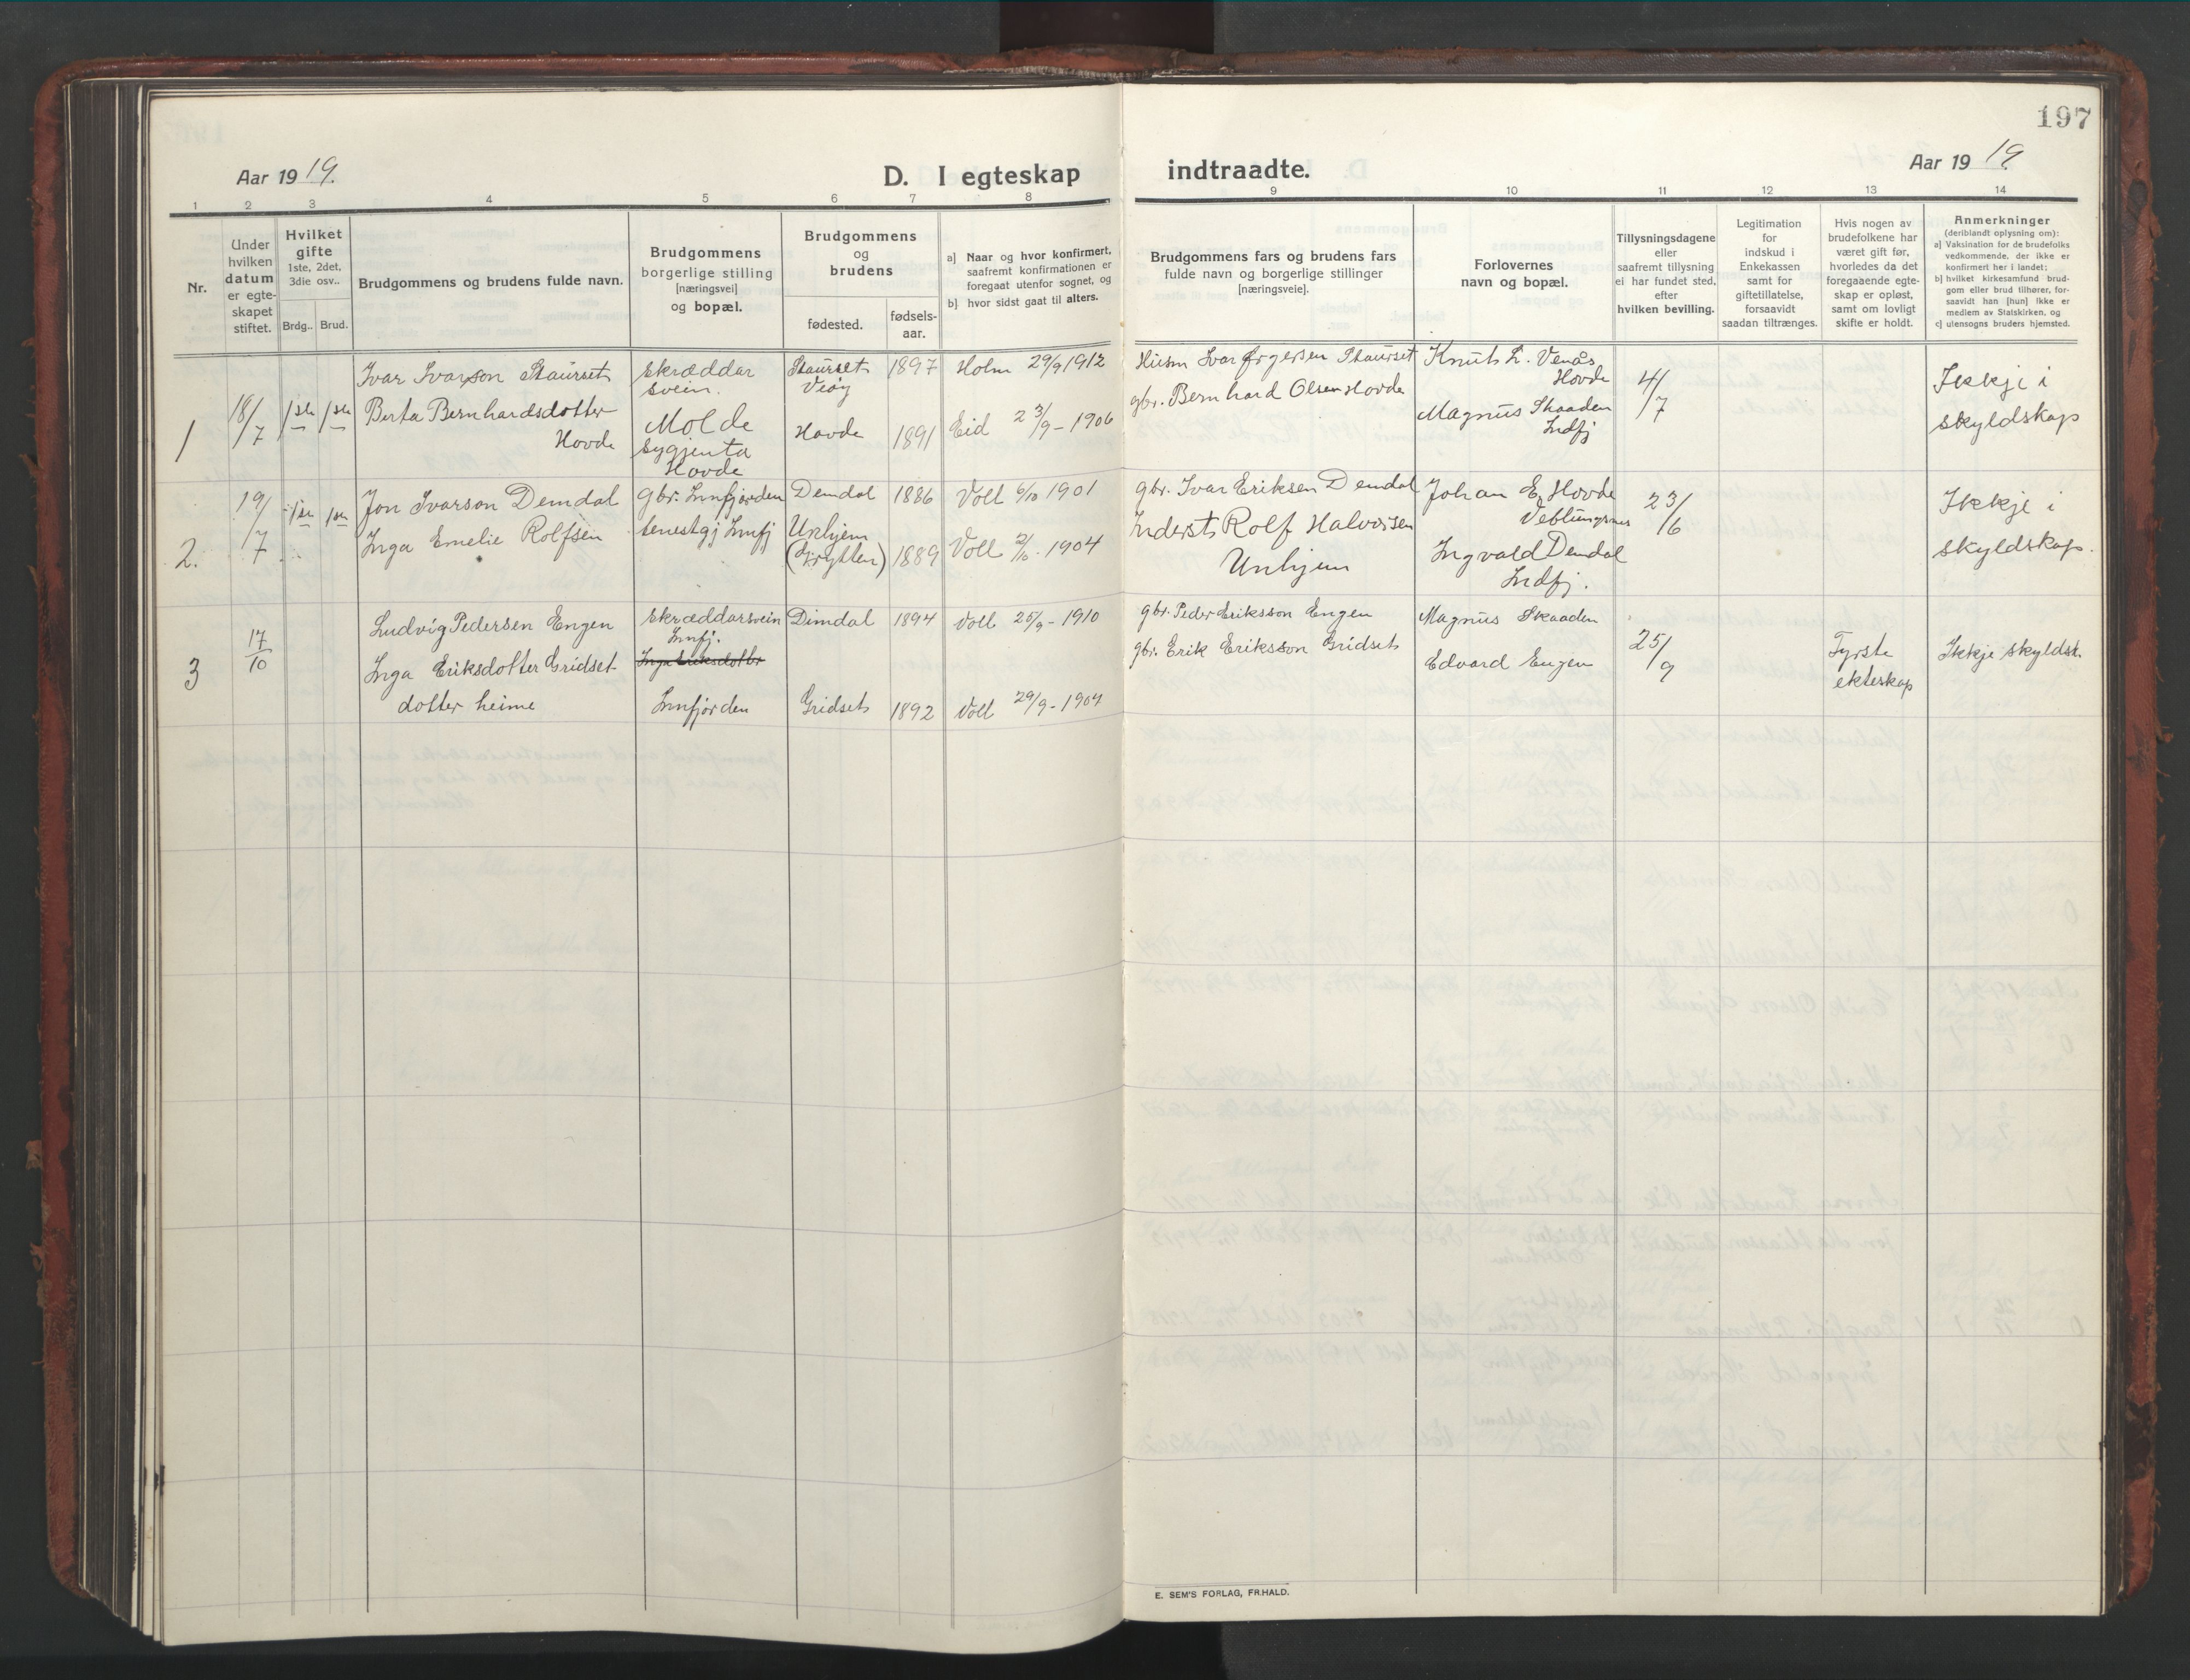 197
Aar 1919.
D. I egteskap
indtraadte.
Aar 1919
1 2 3 4 5 6 7 8
9 10 11 12 13 14
Nr.
Under
hvilken
datum
er egte-
skapet
stiftet.
Hvilket
gifte
1ste, 2det,
3die osv..
Brdg.. Brud.
Brudgommens og brudens fulde navn.
Brudgommens
borgerlige stilling
[næringsvei]
og bopæl.
Brudgommens
og
brudens
fødested.
fødsels-
aar.
a] Naar og hvor konfirmert,
saafremt konfirmationen er
foregaat utenfor sognet, og
b] hvor sidst gaat til alters.
Brudgommens fars og brudens fars
fulde navn og borgerlige stillinger
[næringsveie].
Forlovernes
navn og bopæl.
Tillysningsdagene
eller
saafremt tillysning
ei har fundet sted,
efter
hvilken bevilling.
Legitimation
for
indskud i
Enkekassen
samt for
giftetillatelse,
forsaavidt
saadan tiltrænges.
Hvis nogen av
brudefolkene har
været gift før,
hvorledes da det
foregaaende egte-
skap er opløst,
samt om lovligt
skifte er holdt.
Anmerkninger
(deriblandt oplysning om):
a] Vaksination for de brudefolks
vedkommende, der ikke er
konfirmert her i landet;
b] hvilket kirkesamfund brud-
gom eller brud tilhører, for-
saavidt han [hun] ikke er
medlem av Statskirken, og
c] utensogns bruders hjemsted.
1
18/7
1ste 1ste
Ivar Ivarson Staurset
Berta Bernhardsdotter
Hovde
skræddar
svein.
Molde
sygjenta
Hovde
Staurset
Veøy
1897
Holm 29/9 1912
Hovde
1891
Eid 23/9 - 1906
Husm Ivar Staurset
gbr. Bernhard Olsen Hovde
Knut L. Venås
Hovde
Magnus Skaaden
Indfj
4/7
Ikkje i
skyldskap
2.
19/7
1ste 1ste
Jon Ivarson Demdal
Inga Emelie Rolfsen
gbr. Innfjorden
tenestgj Innfj
Demdal
1886
Voll 6/10 1901
Unhjem
(Grytten)
1889
Voll 2/10 - 1904
gbr. Ivar Eriksen Demdal
Inderst Rolf Halvorsen
Unhjem
Johan E. Hovde
Veblungsnes
Ingvald Demdal
Indfj.
23/6
Ikkje i
skyldskap.
3
17/10
Ludvig Pedersen Engen
Inga Eriksdotter Gridset
dotter heime
skræddarsvein
Innfj.
Inga Eriksdotter
Innfjorden
Dimdal
1894
Voll 25/9 - 1910
Gridset
1892
Voll 29/9 - 1904
gbr. Peder Eriksson Engen
gbr. Erik Eriksson Gridset
Magnus Skaaden
Edvard Engen
25/9
Fyrste
ekteskap
Ikkje skyldsk.
E. SEM'S FORLAG, FR.HALD.